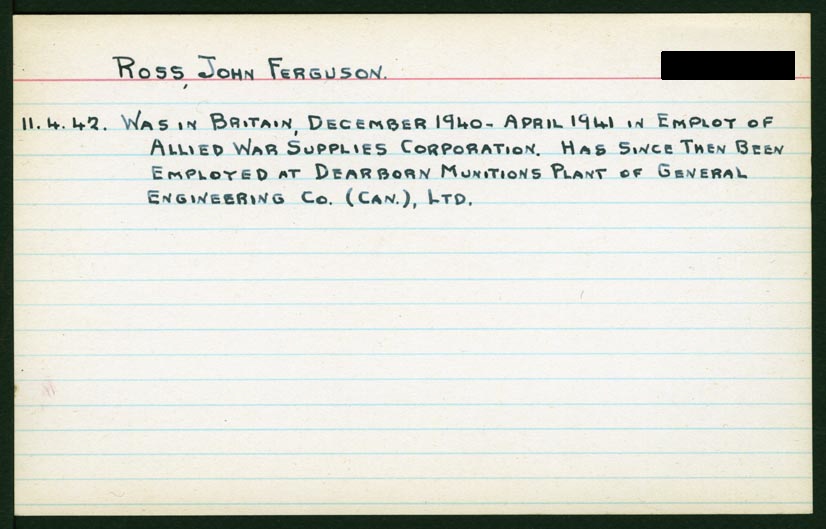 Ross, John Ferguson.
11.4.42. Was in Britain, December 1940 - April 1941 in Employ of
Allied War Supplies Corporation. Has Since Then Been
Employed at Dearborn Munitions Plant of General
Engineering Co. (Can.), Ltd.